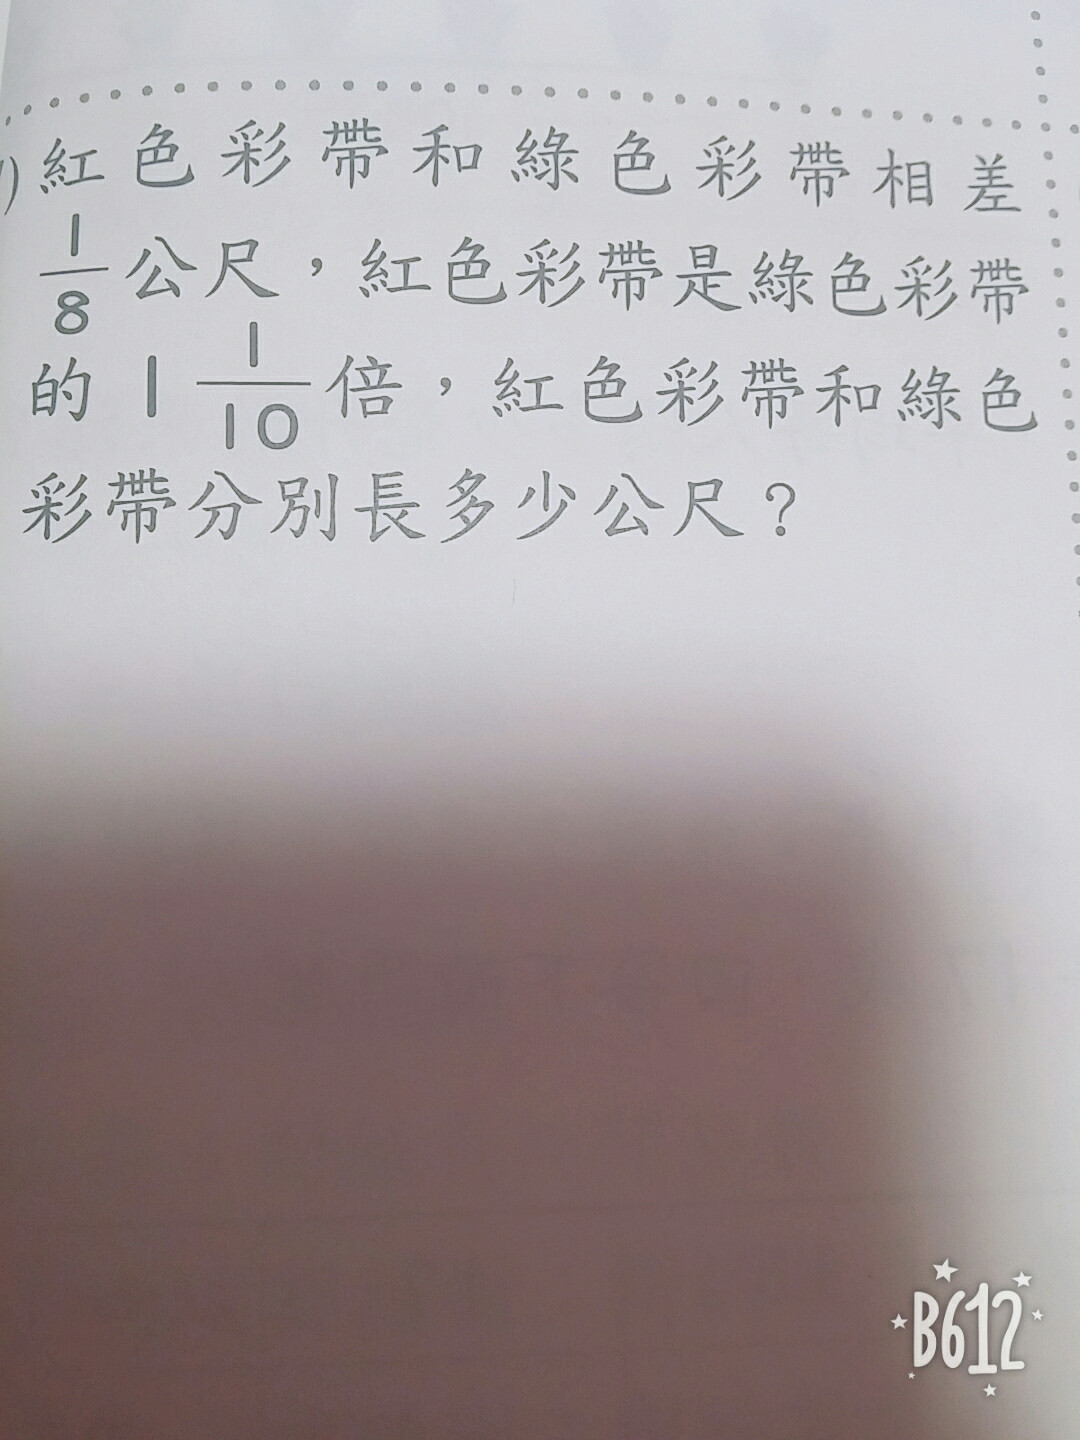 紅色彩帶和綠色彩帶相差
1/8公尺，紅色彩帶是綠色彩帶
的1 1/10倍，紅色彩帶和綠色
彩帶分別長多少公尺？
B612